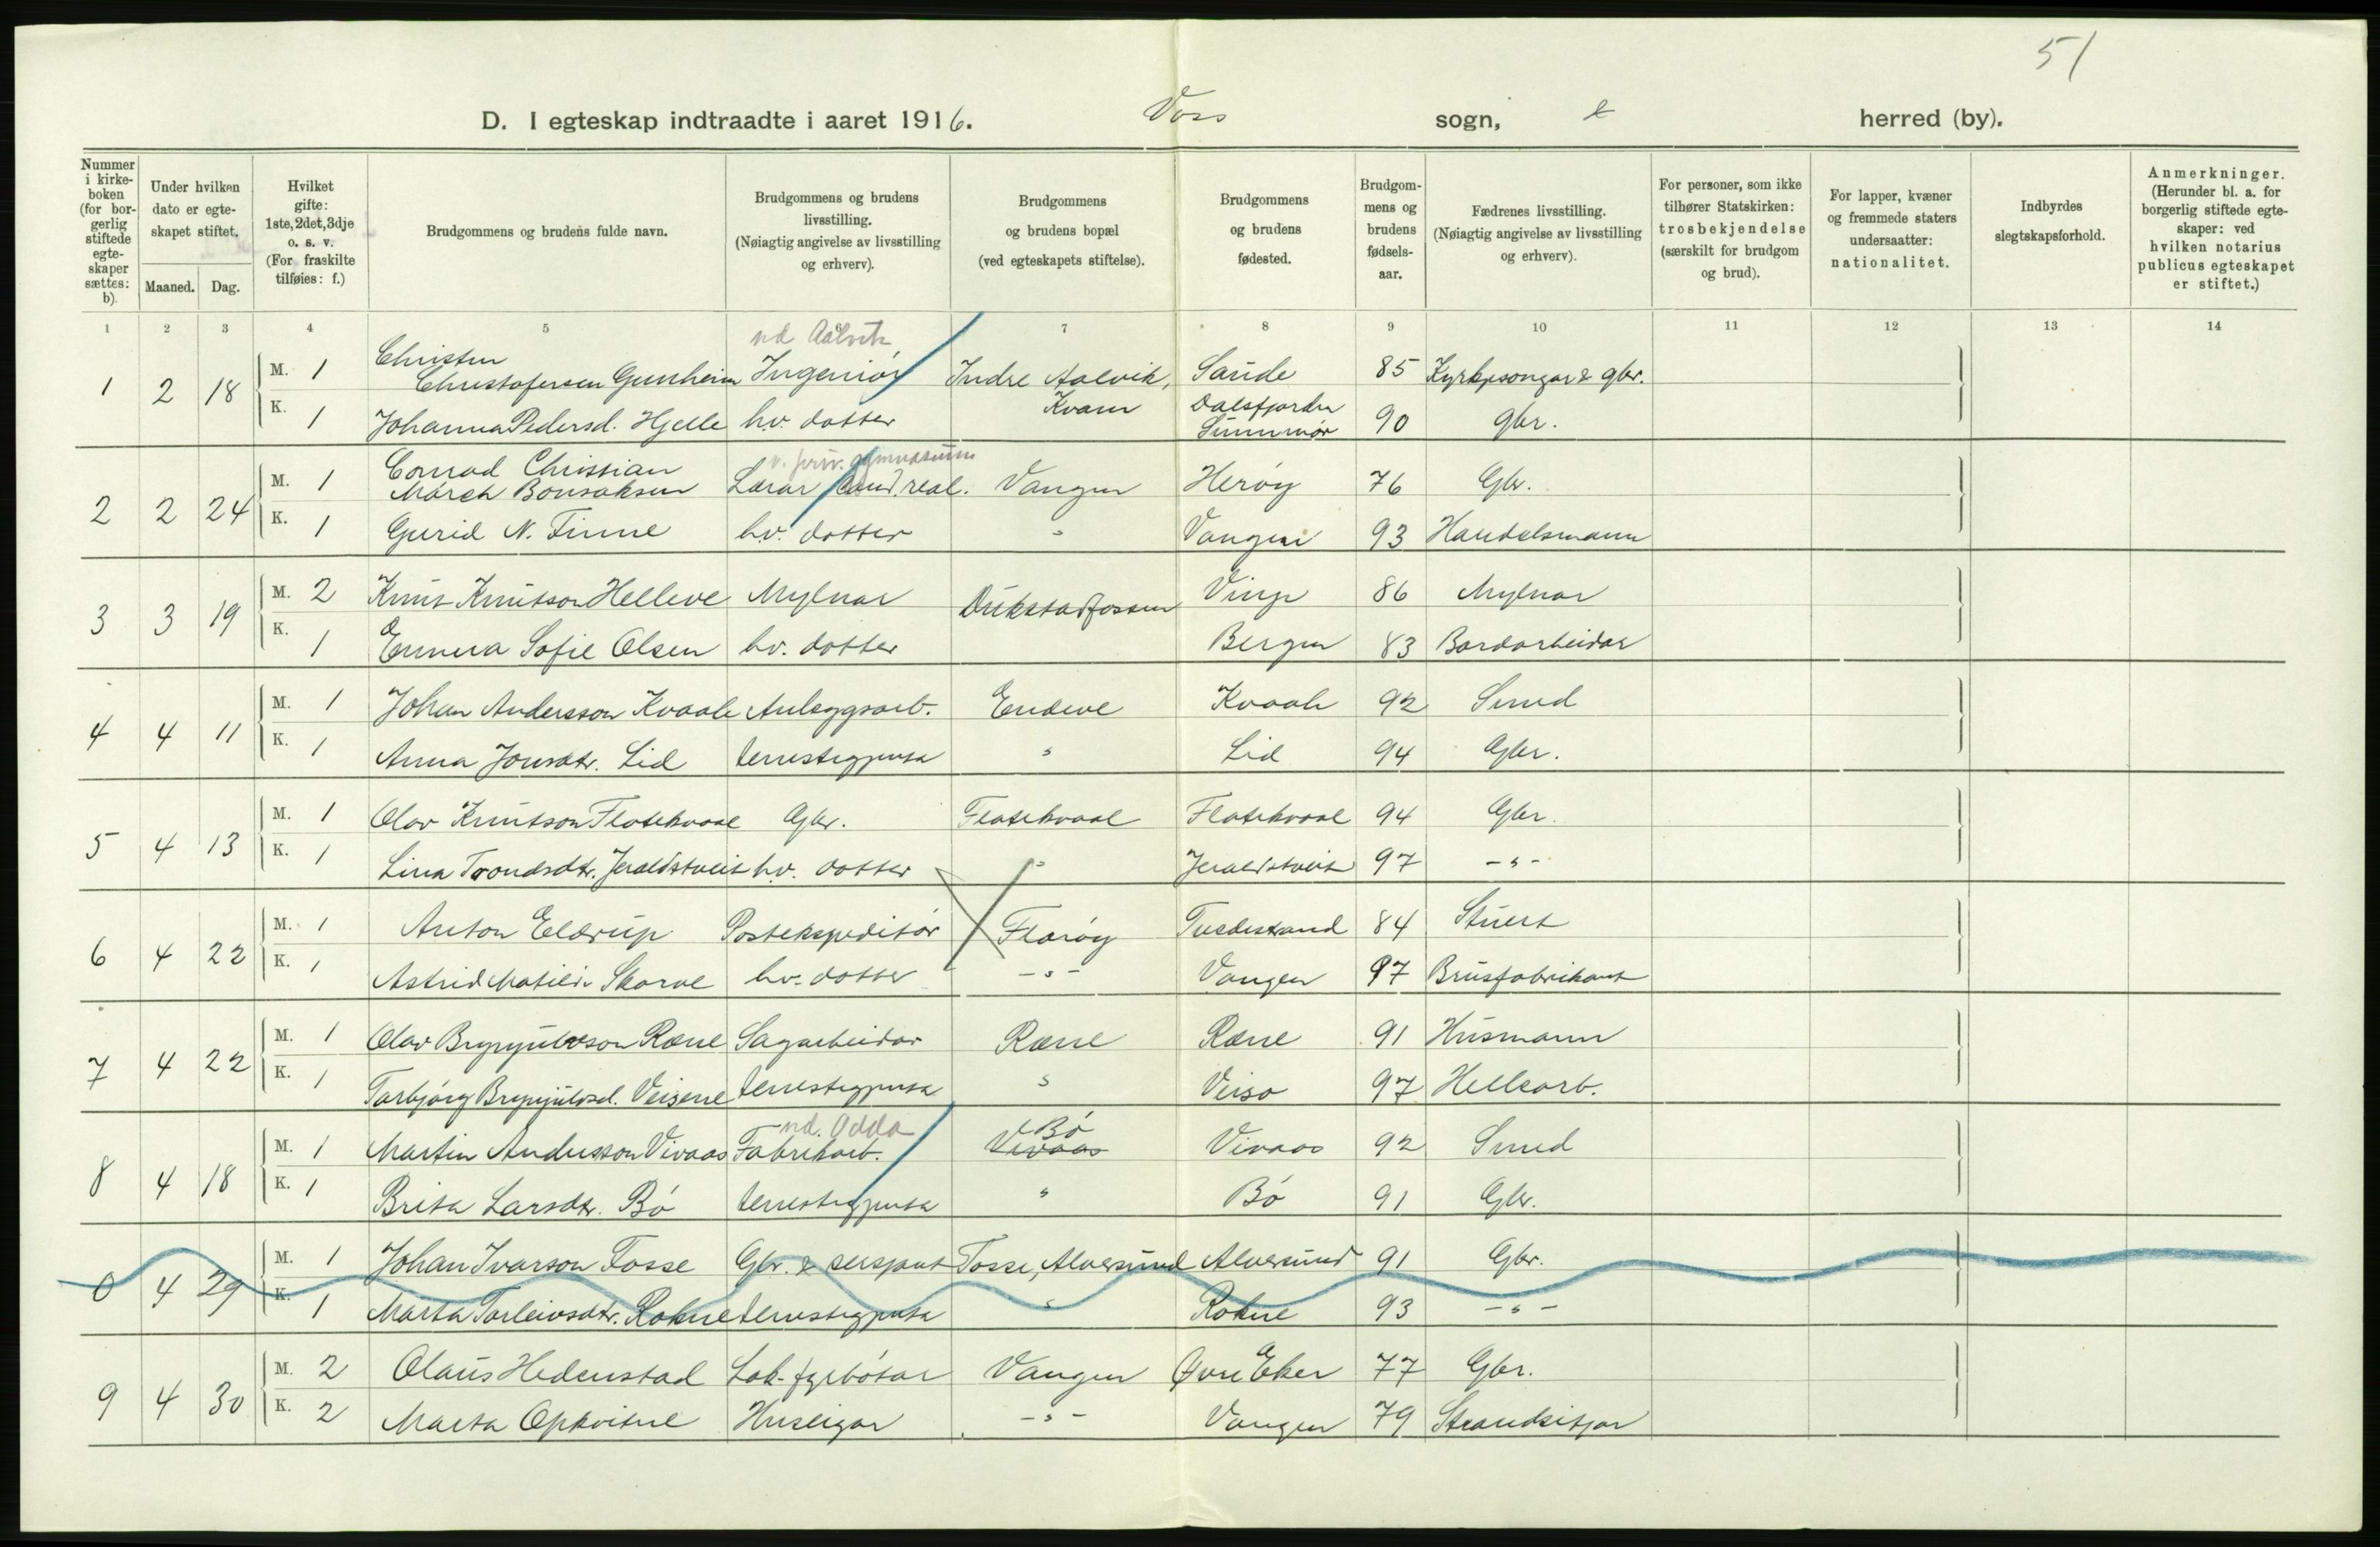 51
D. I egteskap indtraadte i aaret 1916. Voss sogn, & herred (by).
Nummer i kirkeboken (for borgerlig stiftede egteskaper sættes: b).
Under hvilken dato er egteskapet stiftet.
Maaned. Dag.
Hvilket gifte: 1ste, 2det, 3dje o. s. v. (For fraskilte tilføies: f.)
Brudgommens og brudens fulde navn.
Brudgommens og brudens livsstilling. (Nøiagtig angivelse av livsstilling og erhverv).
Brudgommens og brudens bopæl (ved egteskapets stiftelse).
Brudgommens og brudens fødested.
Brudgommens og brudens fødselsaar.
Fædrenes livsstilling. (Nøiagtig angivelse av livsstilling og erhverv).
For personer, som ikke tilhører Statskirken: trosbekjendelse (særskilt for brudgom og brud).
For lapper, kvæner og fremmede staters undersaatter: nationalitet.
Indbyrdes slegtskapsforhold.
Anmerkninger. (Herunder bl. a. for borgerlig stiftede egteskaper: ved hvilken notarius publicus egteskapet er stiftet.)
1 2 3 4 5 7 8 9 10 11 12 13 14
vd Aalvik
1 2 18 M. 1 Christen Christofersen Gunheim Ingeniør Indre Aalvik, Kvam Sande 85 Kyrkjesongar & gbr.
K. 1 Johanna Pedersd. Hjelle hv. dotter Dalsfjorden Sunnmør 90 gbr.
v. priv. gymnasium
2 2 24 M. 1 Conrad Christian March Bonsaksen Lærar cand. real. Vangen Herøy 76 Gbr.
K. 1 Gurid N. Finne hv. dotter " Vangen 93 Handelsmann
3 3 19 M. 2 Knut Knutson Helleve Mylnar Dukstadfossen Vinje 86 Mylnar
K. 1 Emma Sofie Olsen hv. dotter Bergen 83 Bordarbeidar
4 4 11 M. 1 Johan Andersson Kvaale Anleggsarb. Endeve Kvaale 92 Smed
K. 1 Anna Jonsdtr. Lid tenestegjenta " Lid 94 Gbr.
5 4 13 M. 1 Olav Knutson Flatekvaal Gbr. Flatekvaal Flatekvaal 94 Gbr.
K. 1 Lina Trondsdtr. Jeraldstveit hv. dotter " Jeraldstveit 97 -"-
6 4 22 M. 1 Anton Eldrup Postekspeditør Florøy Tvedestrand 84 Stuert
K. 1 Astrid Matilde Skorve hv. dotter -"- Vangen 97 Brusfabrikant
7 4 22 M. 1 Olav Brynjulvson Rene Sagarbeidar Rene Rene 91 Husmann
K. 1 Torbjørg Brynjulvsd. Veisene tenestegjenta " Veiso 97 Hellearb.
nd. Odda
8 4 18 M. 1 Martin Andersson Vivaas Fabrikarb. Vivaas Bø Vivaas 92 Smed
K. 1 Brita Larsdtr. Bø tenestegjenta " Bø 91 Gbr.
0 4 29 M. 1 Johan Ivarson Fosse Gbr. & sersjant Fosse, Alversund Alversund 91 Gbr.
K. 1 Marta Torleivsdtr. Rokne tenestegjenta " Rokne 93 -"-
9 4 30 M. 2 Olaus Hedenstad Lok-fyrbøtar Vangen Øvre Eker 77 Gbr.
K. 2 Marta Opkvitne Huseigar -"- Vangen 79 Strandsitjar